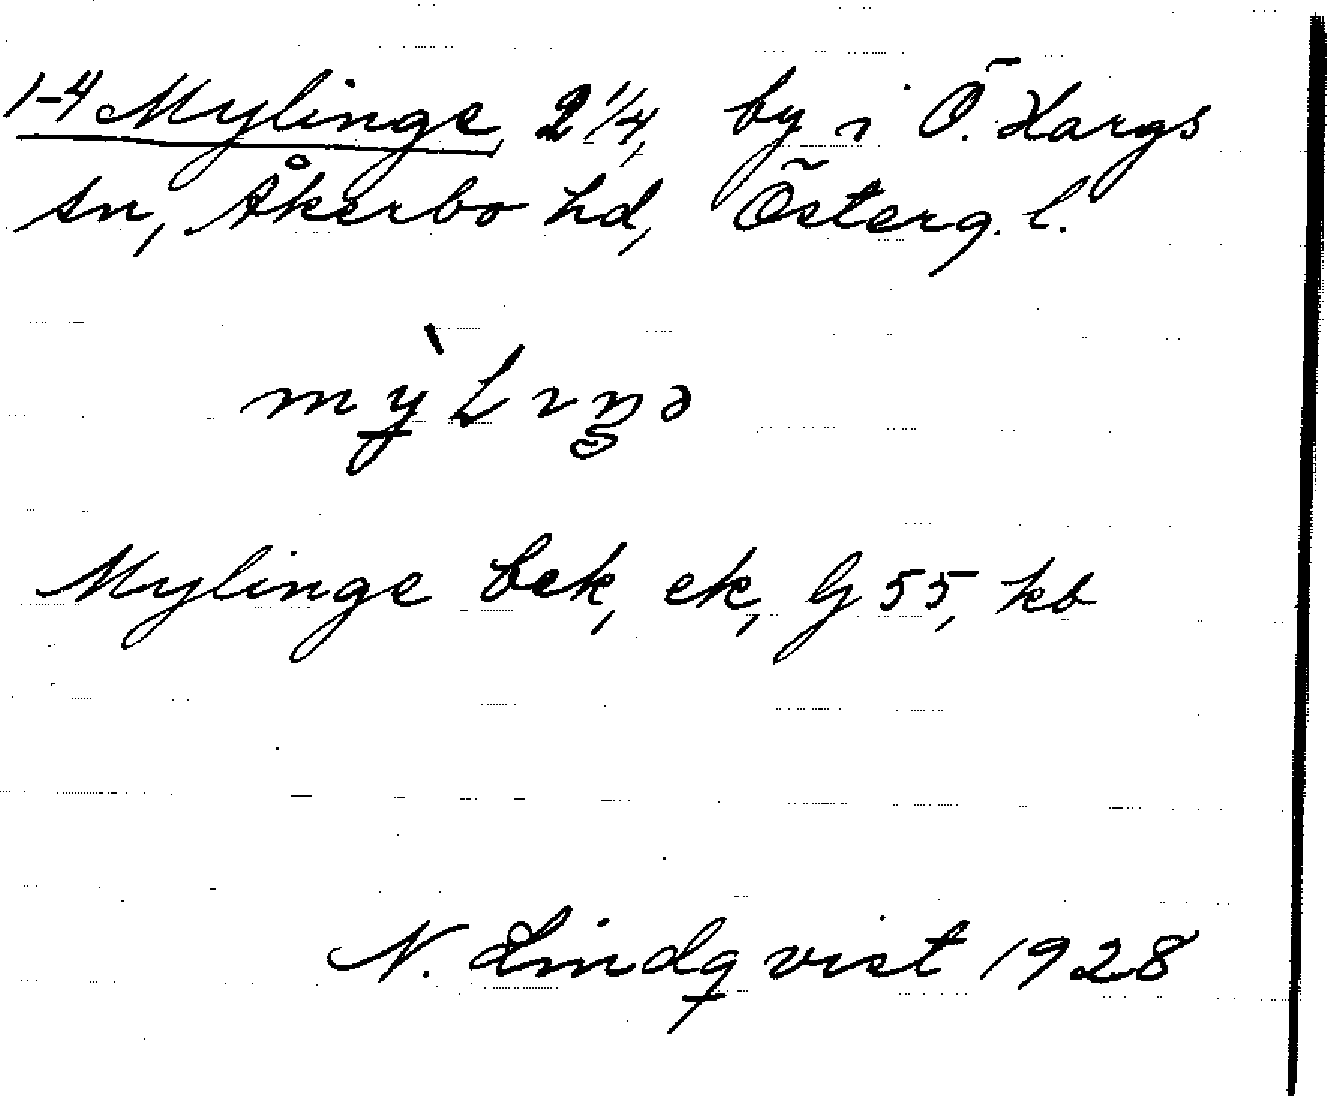 1-4 Mylinge 2 1/4, by i Ö. Hargs
sn, Åkerbo hd, Österg. l.
Mylinge bek, ek, G 55, kb
N. Lindqvist 1928